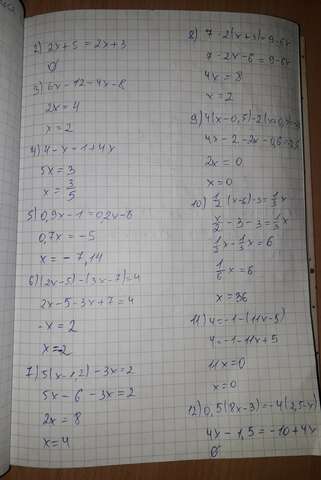 2) 2x + 5 = 2x + 3
∅
3) 6x - 12 - 4x - 8
2x = 4
x = 2
4) 4 - x - 1 + 4x
5x = 3
x = 3/5
5) 0,9x - 1 = 0,2x - 6
0,7x = -5
x = -7,14
6) (2x-5) - (3x-7) = 4
2x - 5 - 3x + 7 = 4
-x = 2
x = -2
7) 5(x-1,2) - 3x = 2
5x - 6 - 3x = 2
2x = 8
x = 4
8) 7 - 2(x+3) = 9 - 6x
7 - 2x - 6 = 9 - 6x
4x = 8
x = 2
9) 4(x-0,5) - 2(x+0,3)
4x - 2 - 2x - 0,6
2x = 0
x = 0
10) 1/2 (x-6) - 3 = 1/3 x
x/2 - 3 - 3 = 1/3 x
1/2 x - 1/3 x = 6
1/6 x = 6
x = 36
11) 4 = -1 - (11x-5)
4 = -1 - 11x + 5
11x = 0
x = 0
12) 0,5(8x-3) = -4(2,5-x)
4x - 1,5 = -10 + 4x
∅